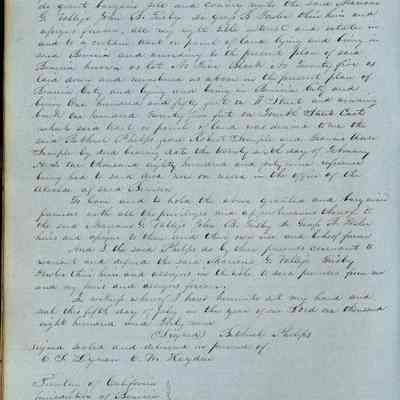 do grant bargain sell and convey unto the said Mariano
G. Vallejo John B. Frisby & Geo. H. Fowler their heirs and
assigns forever, all my right title interest and estate in
and to a certain lot or parcel of land lying and being in
said Benicia and according to the present plan of said
Benicia known as Lot No Five Block No Twenty five as
laid down and numbered as above in the present plan of
Benicia City and lying and being in Benicia City and
being One hundred and fifty feet on H Street and running
back One hundred Twenty five feet on Fourth Street East
which said tract or parcel of land was deeded to me the
said Bethuel Phelps from Robert Semple and Frances Ann
Semple by deed bearing date the Twenty ninth day of February
A.D. One thousand eighty hundred and forty nine reference
being had to said deed now on record in the office of the
Alcalde of said Benicia
To have and to hold the above granted and bargained
premises with all the privileges and appurtenances thereof to
the said Mariano G. Vallejo John B. Frisby & Geo. H. Fowler
heirs and assigns to them and their own use and behoof forever
And I the said Phelps do by these presents covenant to
warrant and defend the said Mariano G. Vallejo Frisby
Fowler their heirs and assigns in the sole to said premises from me
and my heirs and assigns forever.
In witness whereof I have hereunto set my hand and
seal this fifth day of July in the year of our Lord one thousand
eight hundred and forty nine
(Signed) Bethuel Phelps
Signed sealed and delivered in presence of
C. W. Hayden
Territory of California
Jurisdiction of Benicia